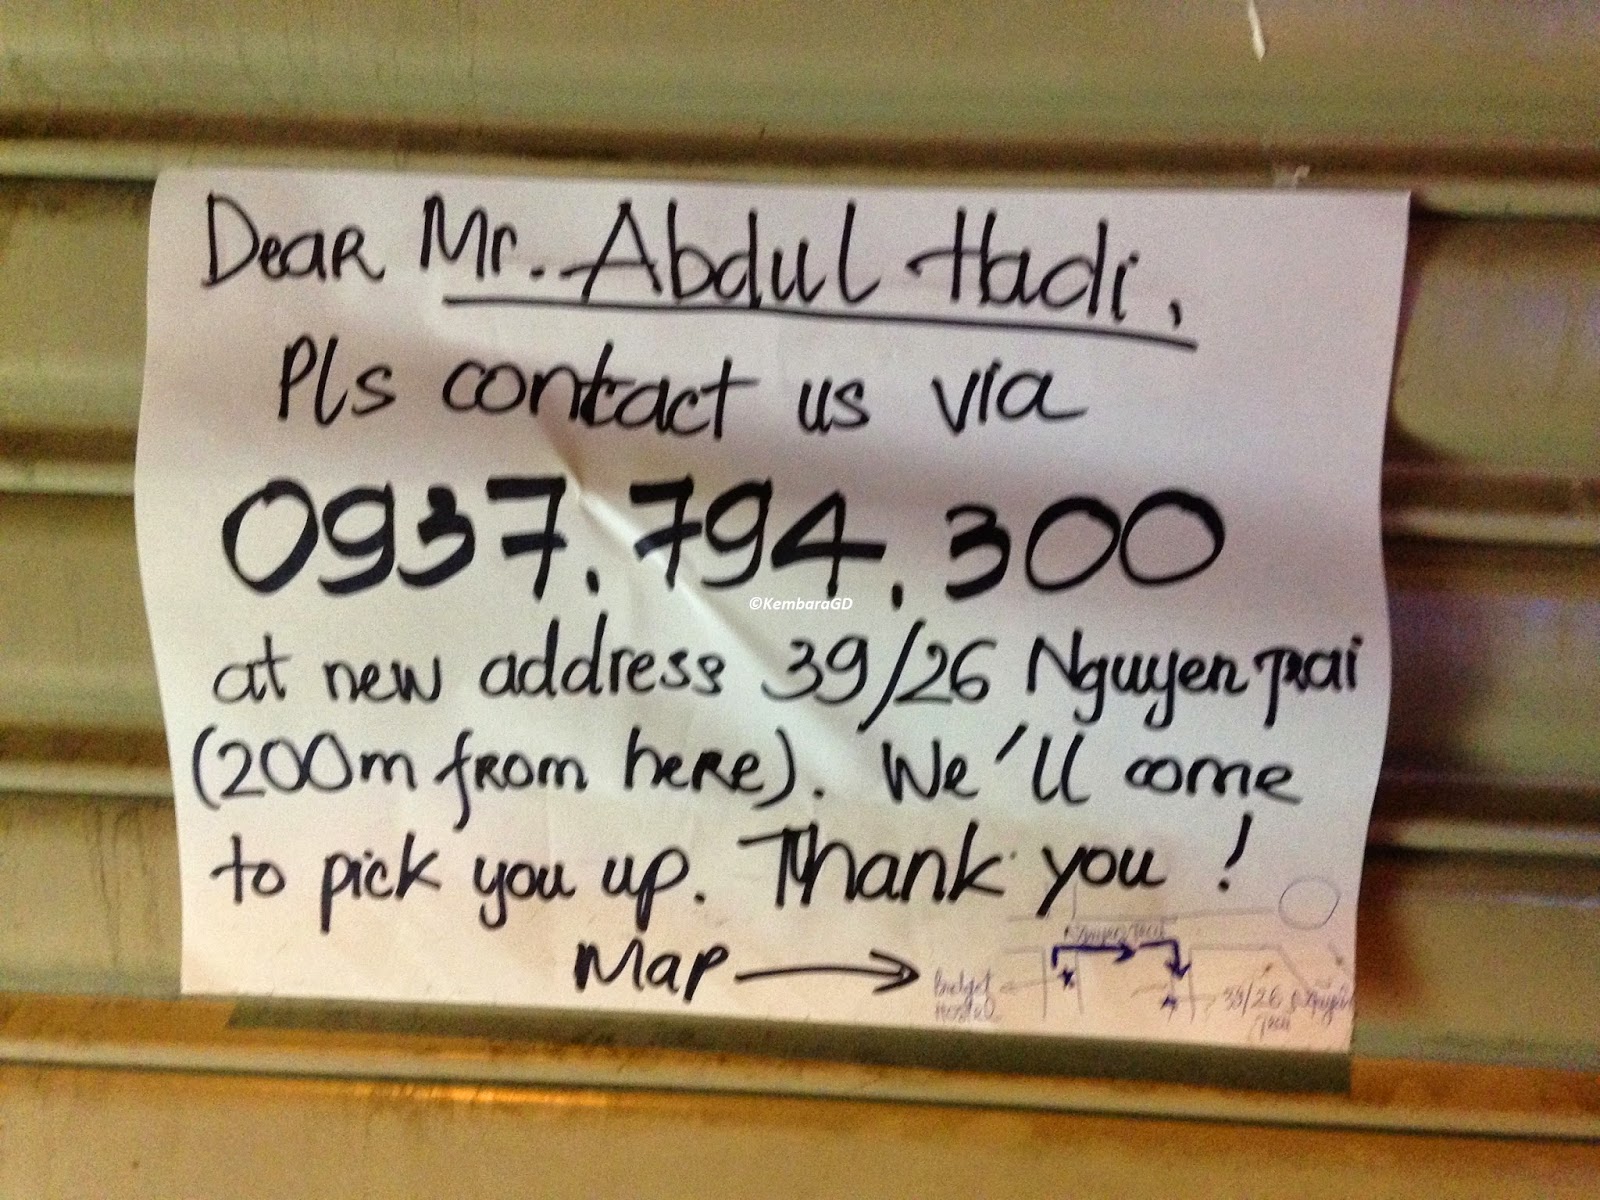 Dear Mr. Abdul Hadi,
Pls contact us via
0937.794.300
©KembaraGD
at new address 39/26 Nguyen Trai
(200m from here). We'll come
to pick you up. Thank you!
Map
Nguyen Trai
Budget
Hostel
39/26 Nguyen
Trai